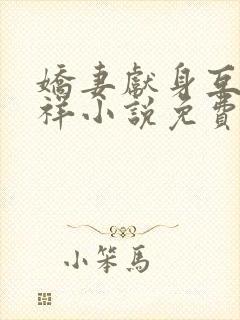 嬌妻獻身互
祥小說免費
小笨馬